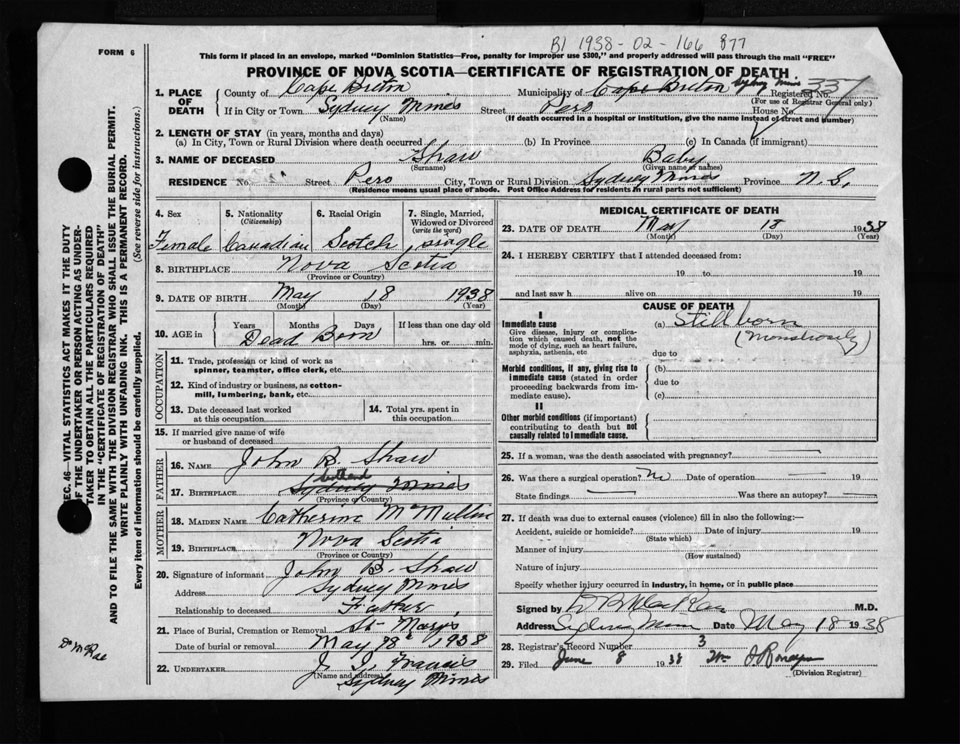 B1 1938-02-166 877
FORM 6
This form if placed in an envelope, marked "Dominion Statistics—Free, penalty for improper use $300," and properly addressed will pass through the mail "FREE"
PROVINCE OF NOVA SCOTIA—CERTIFICATE OF REGISTRATION OF DEATH
1. PLACE OF DEATH
County of Cape Breton Municipality of Cape Breton Sydney Mines Registered No. 357
(For use of Registrar General only)
If in City or Town Sydney Mines Street Pero House No.
(Name) (If death occurred in a hospital or institution, give the name instead of street and number)
2. LENGTH OF STAY (in years, months and days)
(a) In City, Town or Rural Division where death occurred (b) In Province (c) In Canada (if immigrant)
3. NAME OF DECEASED Shaw Baby
(Surname) (Given name or names)
RESIDENCE No. Street Pero City, Town or Rural Division Sydney Mines Province N.S.
(Residence means usual place of abode. Post Office Address for residents in rural parts not sufficient)
4. Sex 5. Nationality (Citizenship) 6. Racial Origin 7. Single, Married, Widowed or Divorced (write the word)
Female Canadian Scotch single
8. BIRTHPLACE Nova Scotia
(Province or Country)
9. DATE OF BIRTH May 18 1938
(Month) (Day) (Year)
10. AGE in Years Months Days If less than one day old
Dead Born hrs. or min.
OCCUPATION
11. Trade, profession or kind of work as spinner, teamster, office clerk, etc.
12. Kind of industry or business, as cotton-mill, lumbering, bank, etc.
13. Date deceased last worked at this occupation
14. Total yrs. spent in this occupation
15. If married give name of wife or husband of deceased
FATHER
16. NAME John B. Shaw
17. BIRTHPLACE Sydney Mines
(Province or Country)
MOTHER
18. MAIDEN NAME Catherine McMullin
19. BIRTHPLACE Nova Scotia
(Province or Country)
20. Signature of informant John B. Shaw
Address Sydney Mines
Relationship to deceased Father
21. Place of Burial, Cremation or Removal St Marys
Date of burial or removal May 18 1938
22. UNDERTAKER J. J. Francis
(Name and address)
Sydney Mines
MEDICAL CERTIFICATE OF DEATH
23. DATE OF DEATH May 18 1938
(Month) (Day) (Year)
24. I HEREBY CERTIFY that I attended deceased from:
19 to 19
and last saw h alive on 19
CAUSE OF DEATH
I
Immediate cause (a) Stillborn
(Monstrosity)
Give disease, injury or complication which caused death, not the mode of dying, such as heart failure, asphyxia, asthenia, etc
due to
Morbid conditions, if any, giving rise to immediate cause (stated in order proceeding backwards from immediate cause).
(b)
due to
(c)
II
Other morbid conditions (if important) contributing to death but not causally related to immediate cause.
25. If a woman, was the death associated with pregnancy?
26. Was there a surgical operation? no Date of operation 19
State findings Was there an autopsy?
27. If death was due to external causes (violence) fill in also the following:—
Accident, suicide or homicide? Date of injury 19
(State which)
Manner of injury
(How sustained)
Nature of injury
Specify whether injury occurred in industry, in home, or in public place
Signed by D B MacRae M.D.
Address Sydney Mines Date May 18 1938
28. Registrar's Record Number 3
29. Filed June 8 1938
(Division Registrar)
SEC. 46—VITAL STATISTICS ACT MAKES IT THE DUTY
OF THE UNDERTAKER OR PERSON ACTING AS UNDER-
TAKER TO OBTAIN ALL THE PARTICULARS REQUIRED
IN THE "CERTIFICATE OF REGISTRATION OF DEATH"
AND TO FILE THE SAME WITH THE DIVISION REGISTRAR WHO SHALL ISSUE THE BURIAL PERMIT.
WRITE PLAINLY WITH UNFADING INK. THIS IS A PERMANENT RECORD.
Every item of information should be carefully supplied. (See reverse side for instructions.)
Dr McRae